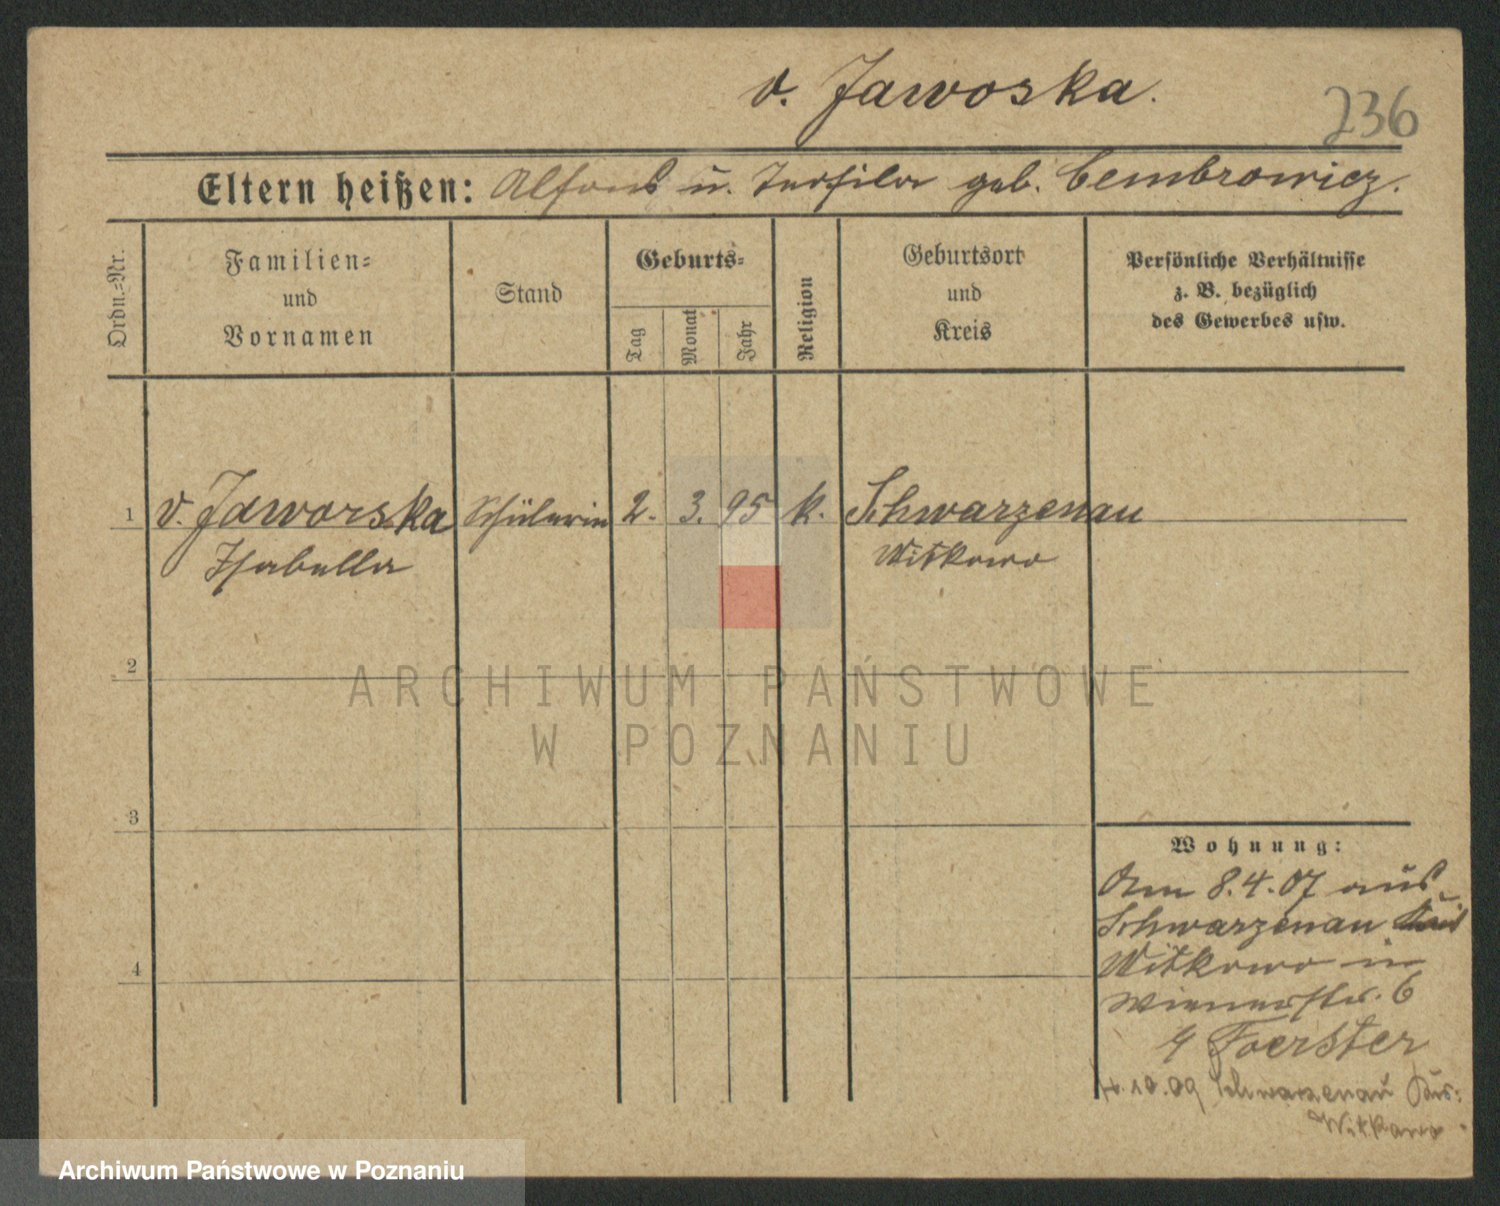 v. Jawoska.
236
Eltern heißen: Alfons u. Teofila geb. Cembrowicz.
Ordn.-Nr.
Familien-
und
Vornamen
Stand
Geburts-
Tag
Monat
Jahr
Religion
Geburtsort
und
Kreis
Persönliche Verhältnisse
z. B. bezüglich
des Gewerbes usw.
1 v. Jaworska Schülerin 2. 3. 95 k. Schwarzenau
Isabella Witkowo
2
ARCHIWUM PAŃSTWOWE
W POZNANIU
3
Wohnung:
Am 8.4.07 aus
Schwarzenau Kreis
4
Witkowo in
Wienerstr. 6
Foerster
4.10.09 Schwarzenau
Witkowo
Archiwum Państwowe w Poznaniu